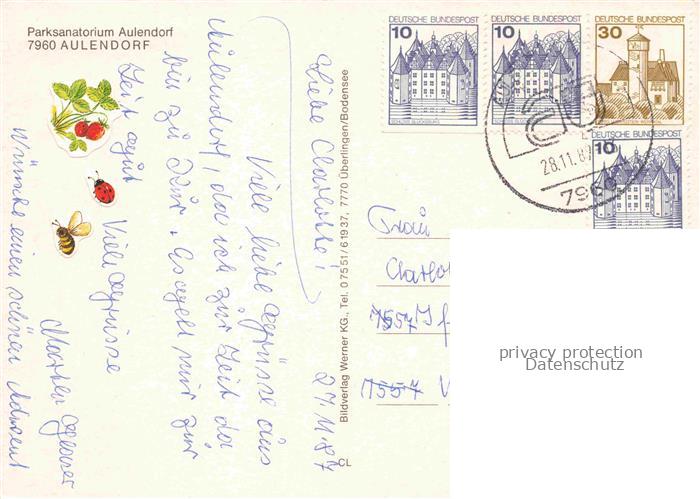 Parksanatorium Aulendorf
7960 AULENDORF
Liebe Charlotte! 27.11.87
Viele liebe Grüsse aus
Aulendorf, da ich zur Zeit da
bin zur Kur. Es geht mir zur
Zeit gut
Viele Grüsse
Wünsche einen schönen Advent
Bildverlag Werner KG., Tel. 07551/61937, 7770 Überlingen/Bodensee
CL
DEUTSCHE BUNDESPOST
10
SCHLOSS GLÜCKSBURG
DEUTSCHE BUNDESPOST
10
DEUTSCHE BUNDESPOST
30
DEUTSCHE BUNDESPOST
10
28.11.8
7960
Frau
Charlot
7557
7557
privacy protection
Datenschutz